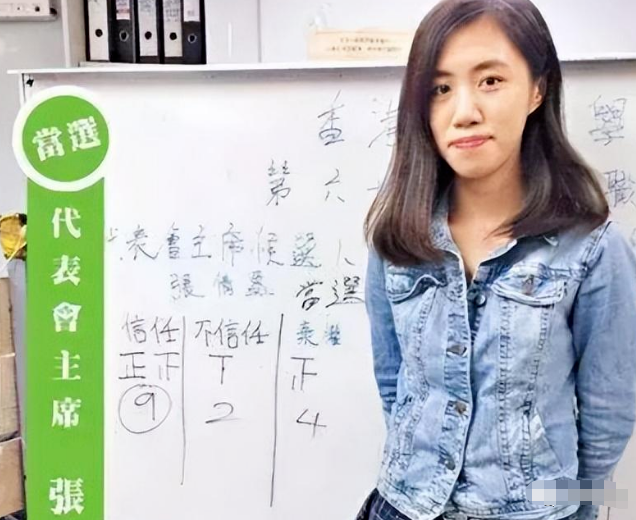 當選
代表會主席 張
香港 學
第六
表會主席候選人
張倩 當選
信任 不信任 棄權
正正 丅 正
9 2 4